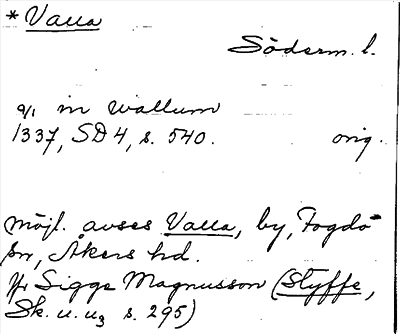 * Valla
Söderm. l.
9/1 in wallum
1337, SD 4, s. 540. orig.
möjl. avses Valla, by, Fogdö
sn, Åkers hd.
Jfr Sigge Magnusson (Styffe,
Sk. u. u3 s. 295)